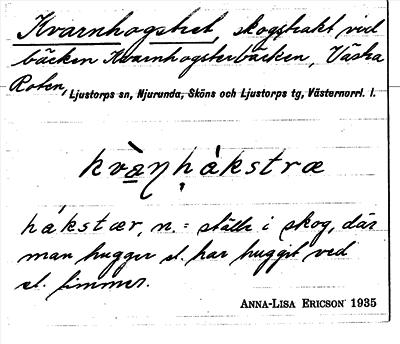 Kvarnhogstret, skogstrakt vid
bäcken Kvarnhogsterbäcken, Västra
Roten, Ljustorps sn, Njurunda, Sköns och Ljustorps tg, Västernorrl. l.
kvàṇhákstræ
hákstær, n. = ställe i skog, där
man hugger el. har huggit ved
el. timmer.
ANNA-LISA ERICSON 1935